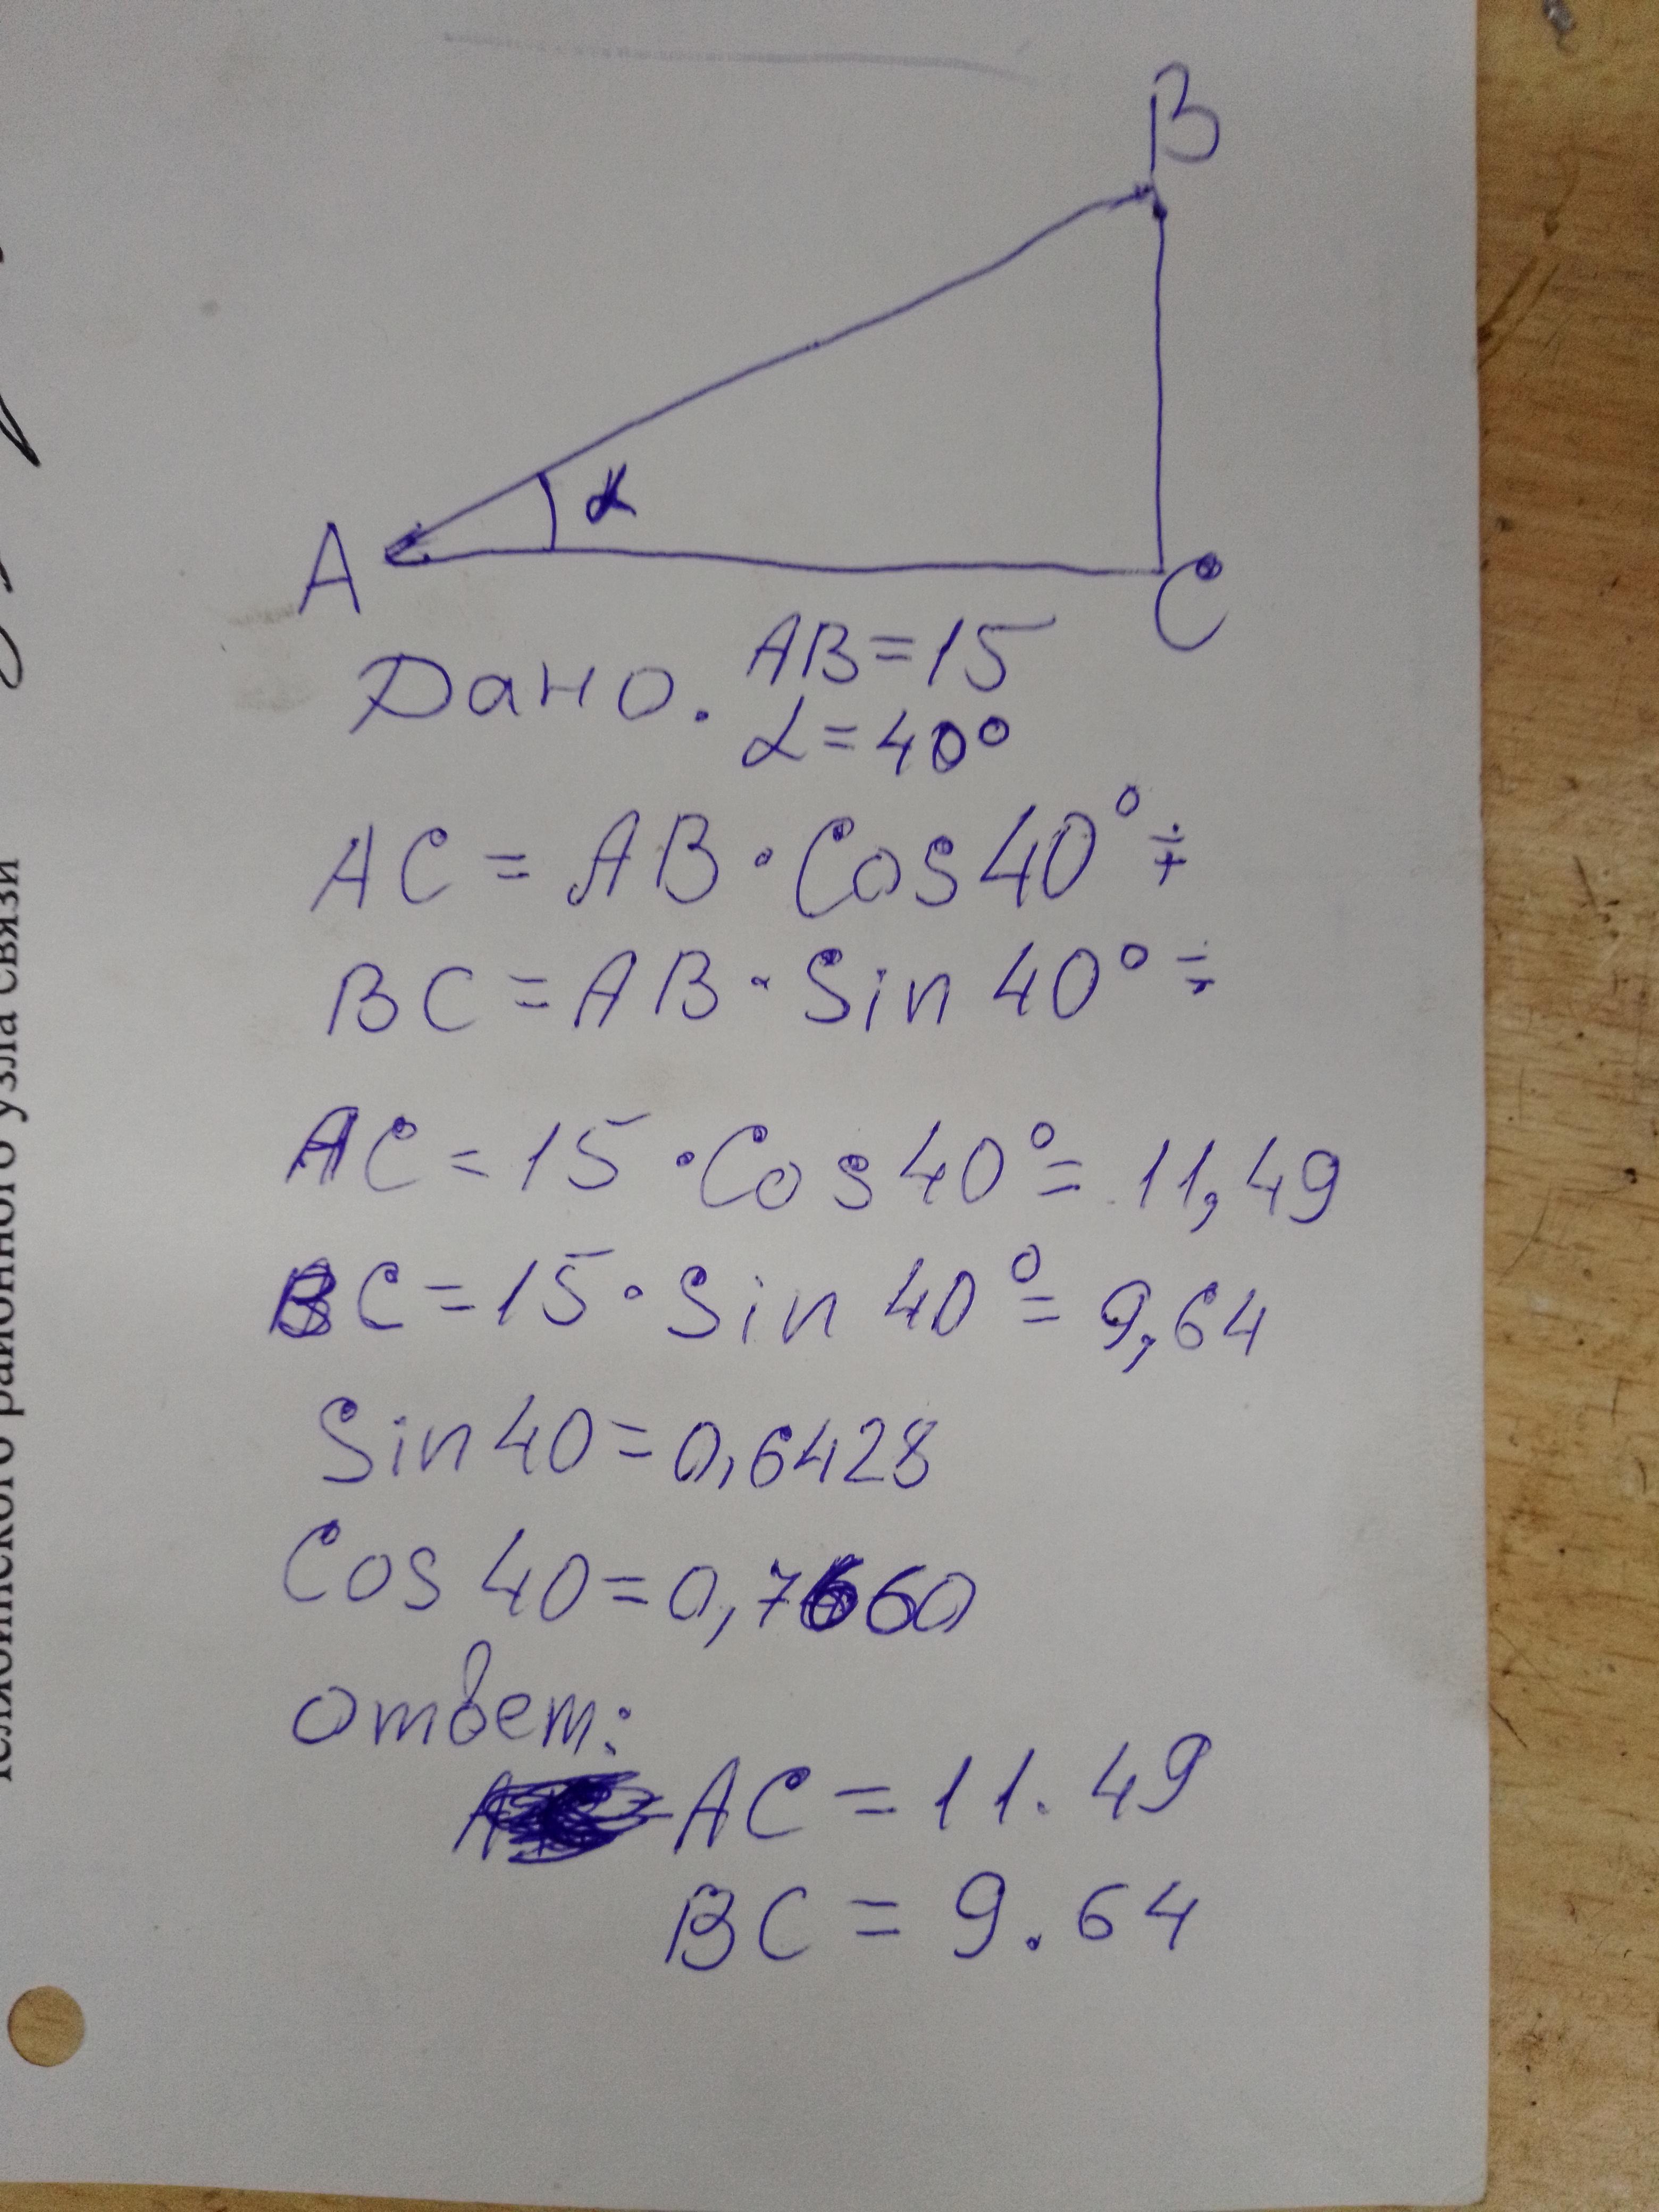 B
α
A
C
Дано. AB=15
α=40°
AC = AB · Cos 40° ÷
BC = AB · Sin 40° ÷
AC = 15 · Cos 40° = 11,49
BC = 15 · Sin 40° = 9,64
Sin 40 = 0,6428
Cos 40 = 0,7660
Ответ:
AC = 11.49
BC = 9.64
районного узла связи